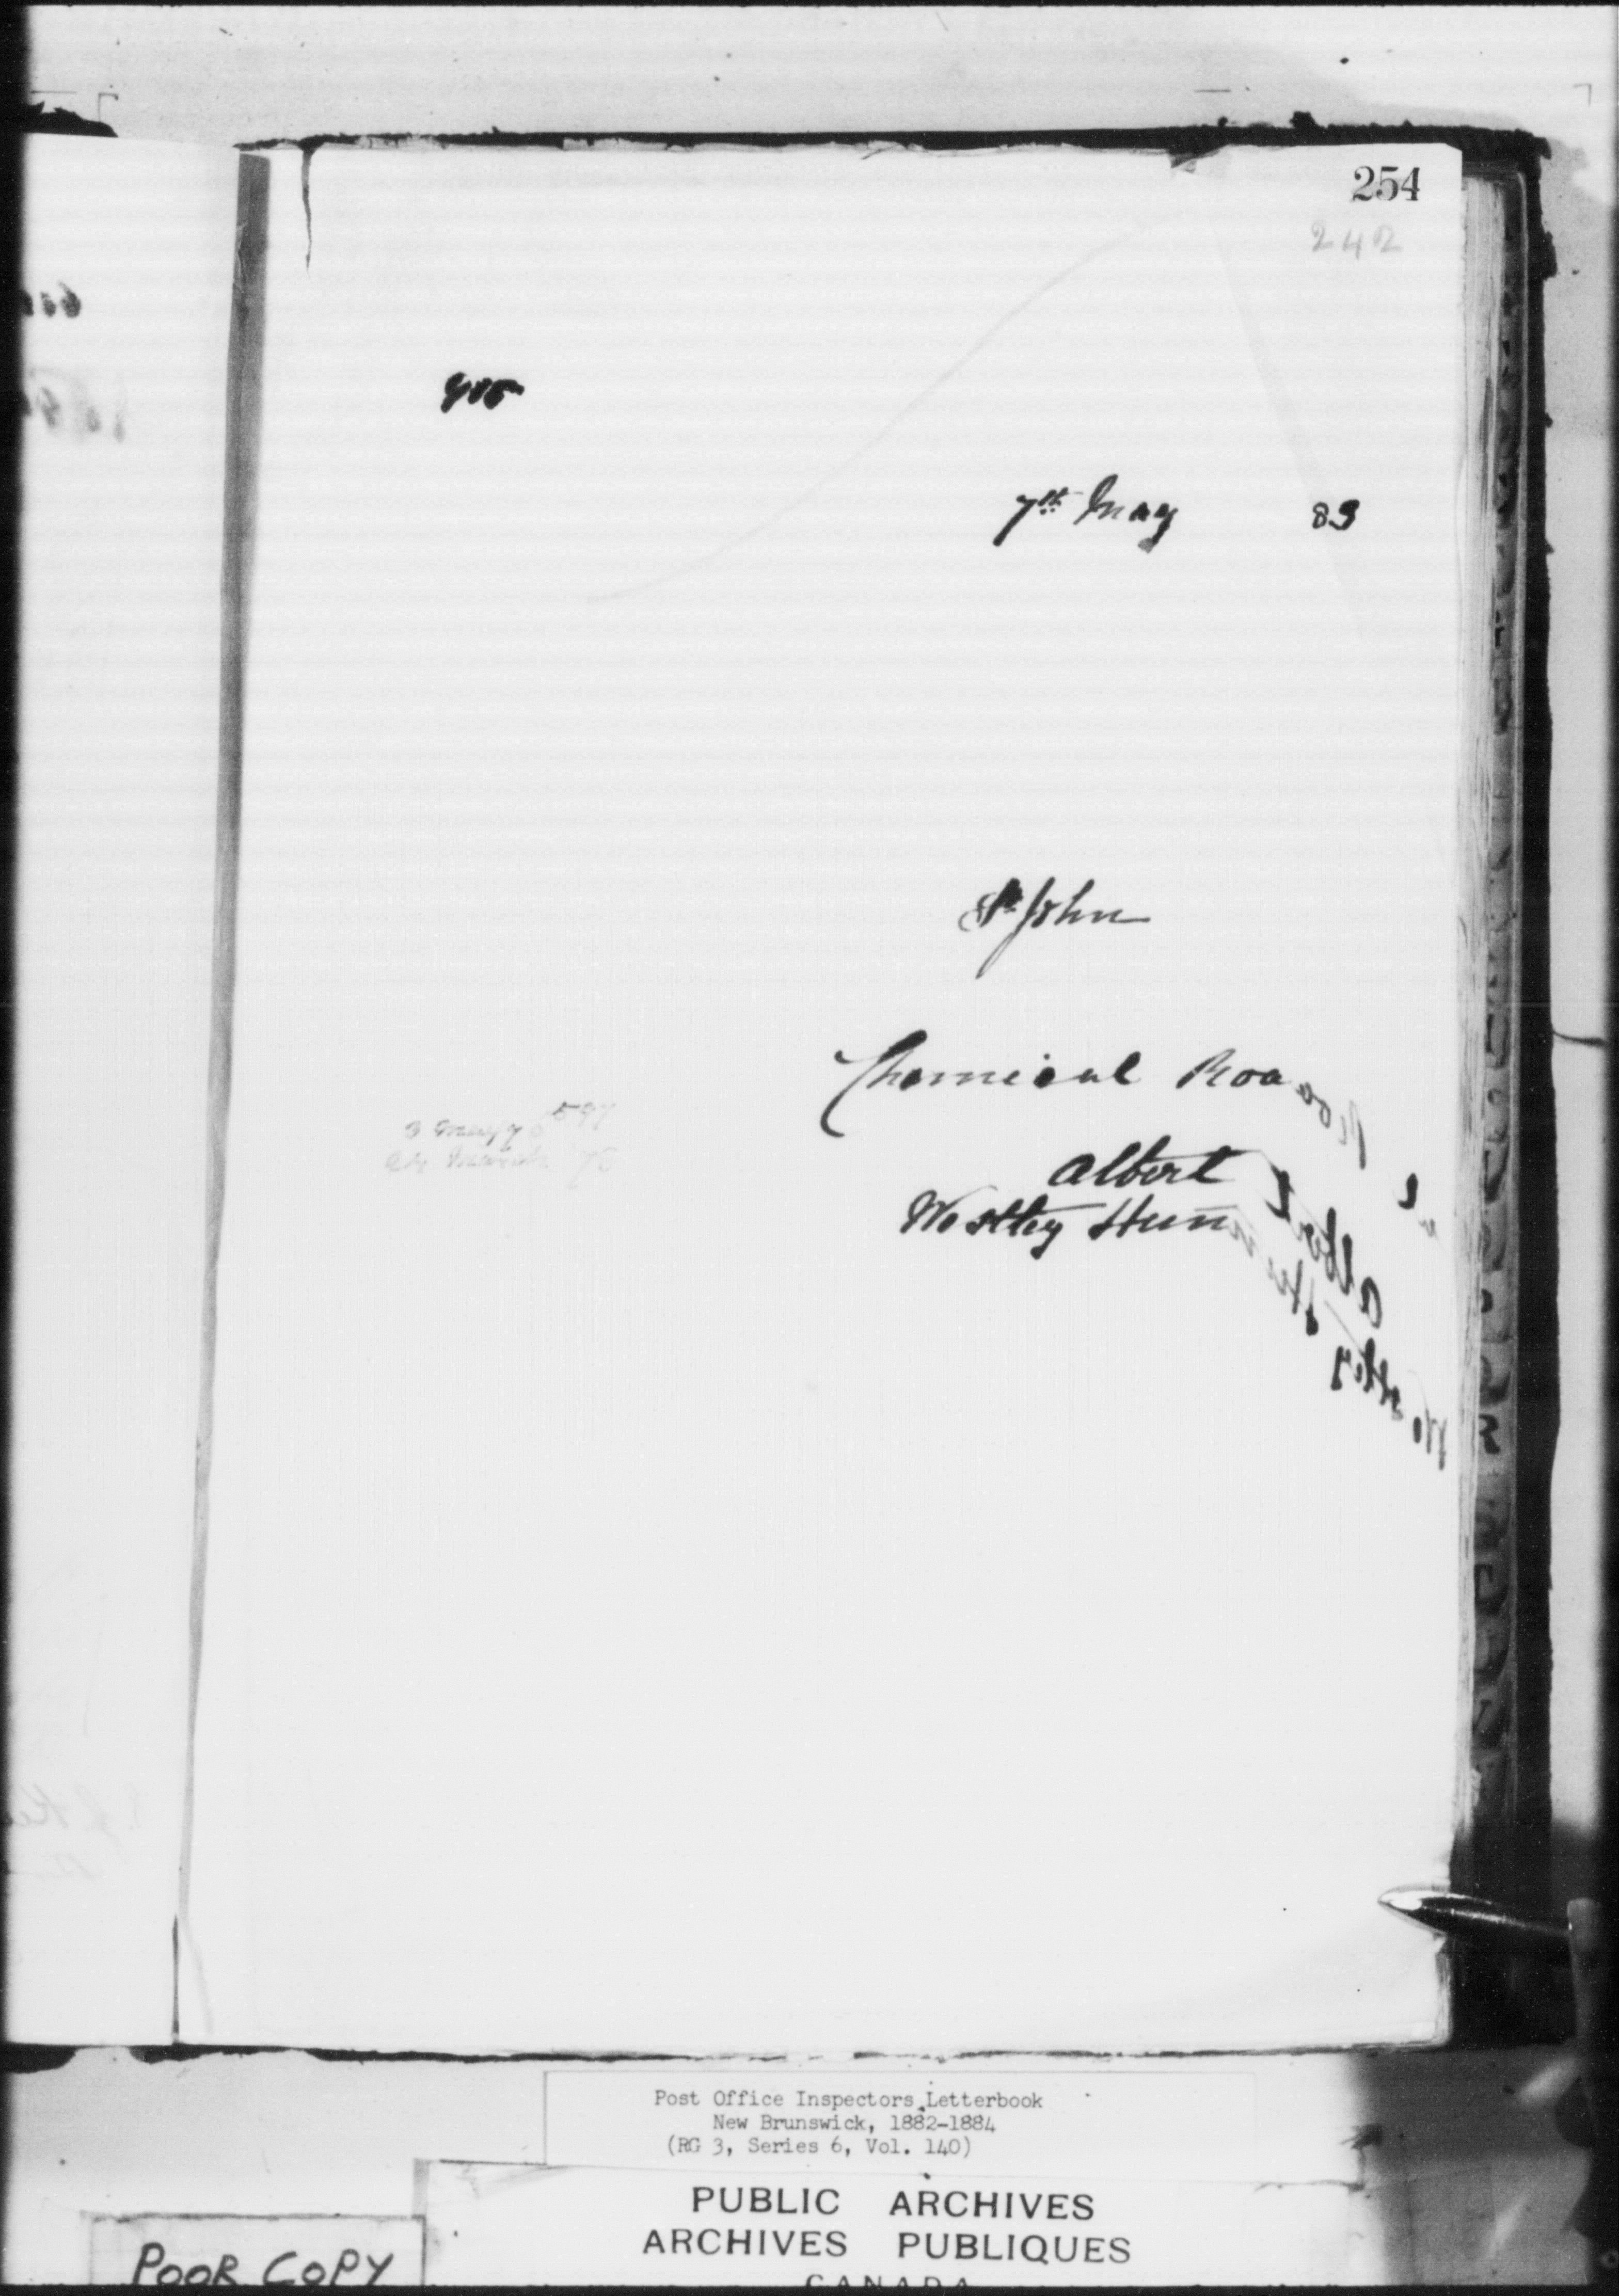 254
242
485
7th May 83
St John
Chemical Road
Albert
Westley Hunn
Post Office Inspectors Letterbook
New Brunswick, 1882-1884
(RG 3, Series 6, Vol. 140)
PUBLIC ARCHIVES
ARCHIVES PUBLIQUES
CANADA
POOR COPY